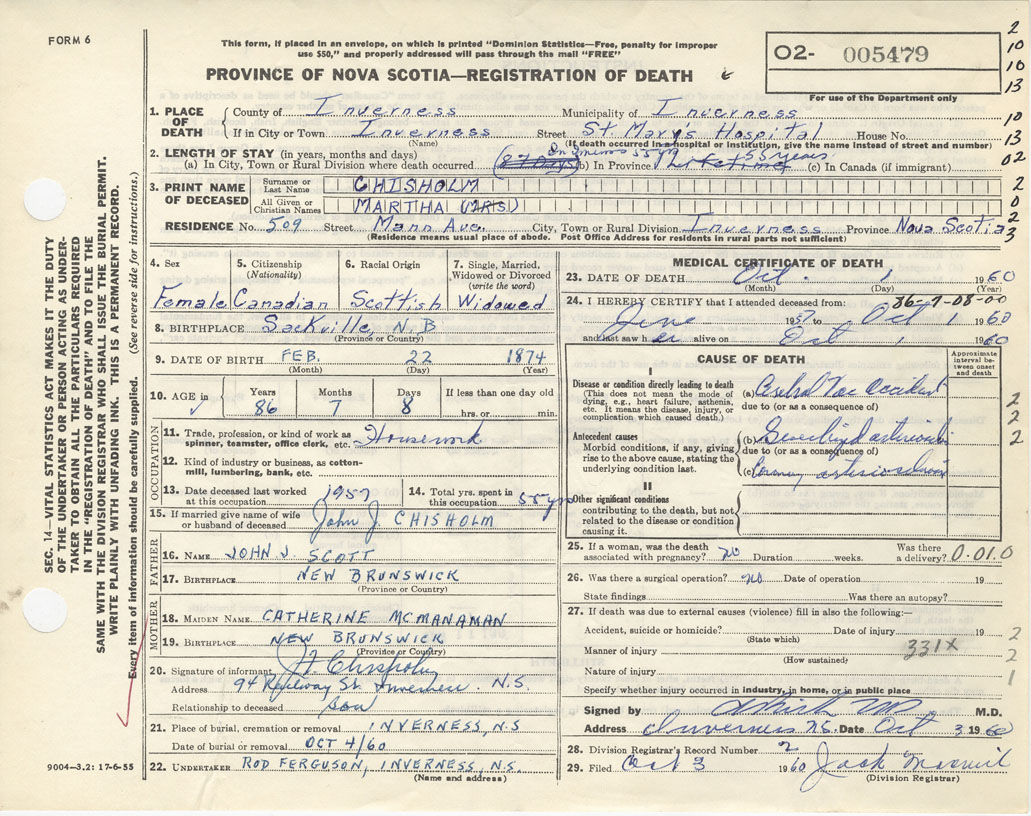 FORM 6
This form, if placed in an envelope, on which is printed "Dominion Statistics—Free, penalty for improper
use $50," and properly addressed will pass through the mail "FREE"
PROVINCE OF NOVA SCOTIA—REGISTRATION OF DEATH
02- 005479
For use of the Department only
2
10
10
13
10
13
02
2
0
2
3
1. PLACE OF DEATH
County of Inverness Municipality of Inverness
If in City or Town Inverness Street St Mary's Hospital House No.
(Name) (If death occurred in a hospital or institution, give name instead of street and number)
2. LENGTH OF STAY (in years, months and days) In Inverness 55 yrs 55 years
(a) In City, Town or Rural Division where death occurred (b) In Province (c) In Canada (if immigrant)
3. PRINT NAME OF DECEASED
Surname or Last Name CHISHOLM
All Given or Christian Names MARTHA (MRS)
RESIDENCE No. 509 Street Mann Ave. City, Town or Rural Division Inverness Province Nova Scotia
(Residence means usual place of abode. Post Office Address for residents in rural parts not sufficient)
4. Sex Female
5. Citizenship (Nationality) Canadian
6. Racial Origin Scottish
7. Single, Married, Widowed or Divorced (write the word) Widowed
8. BIRTHPLACE Sackville, N.B
(Province or Country)
9. DATE OF BIRTH FEB. 22 1874
(Month) (Day) (Year)
10. AGE in Years Months Days If less than one day
86 7 8 hrs. or min.
OCCUPATION
11. Trade, profession, or kind of work as spinner, teamster, office clerk, etc. Housework
12. Kind of industry or business, as cotton-mill, lumbering, bank, etc.
13. Date deceased last worked at this occupation 1957
14. Total yrs. spent in this occupation 55 yrs
15. If married give name of wife or husband of deceased John J. CHISHOLM
FATHER
16. NAME JOHN J. SCOTT
17. BIRTHPLACE NEW BRUNSWICK
(Province or Country)
MOTHER
18. MAIDEN NAME CATHERINE MCMANAMAN
19. BIRTHPLACE NEW BRUNSWICK
(Province or Country)
20. Signature of informant Chisholm
Address 94 Railway St. Inverness. N.S.
Relationship to deceased son
21. Place of burial, cremation or removal INVERNESS, N.S
Date of burial or removal OCT 4/60
22. UNDERTAKER ROD FERGUSON, INVERNESS, N.S.
(Name and address)
MEDICAL CERTIFICATE OF DEATH
23. DATE OF DEATH Oct. 1 1960
(Month) (Day) (Year)
86-7-08-00
24. I HEREBY CERTIFY that I attended deceased from:
June 1957 to Oct 1 1960
and last saw her alive on Oct 1 1960
CAUSE OF DEATH
Approximate interval between onset and death
I
Disease or condition directly leading to death
(This does not mean the mode of dying, e.g., heart failure, asthenia, etc. It means the disease, injury, or complication which caused death.)
(a)
due to (or as a consequence of)
Antecedent causes
Morbid conditions, if any, giving rise to the above cause, stating the underlying condition last.
(b)
due to (or as a consequence of)
(c) Coronary arteriosclerosis
II
Other significant conditions
contributing to the death, but not related to the disease or condition causing it.
2
2
2
25. If a woman, was the death associated with pregnancy? no Duration weeks. Was there a delivery? 0.01.0
26. Was there a surgical operation? no Date of operation 19
State findings Was there an autopsy?
27. If death was due to external causes (violence) fill in also the following:—
Accident, suicide or homicide? Date of injury 19
(State which)
Manner of injury 331X
(How sustained)
Nature of injury
2
2
1
Specify whether injury occurred in industry, in home, or in public place
Signed by M.D.
Address Inverness N.S. Date Oct 3 1960
28. Division Registrar's Record Number 2
29. Filed Oct 3 1960 Jack
(Division Registrar)
SEC. 14—VITAL STATISTICS ACT MAKES IT THE DUTY
OF THE UNDERTAKER OR PERSON ACTING AS UNDER-
TAKER TO OBTAIN ALL THE PARTICULARS REQUIRED
IN THE "REGISTRATION OF DEATH" AND TO FILE THE
SAME WITH THE DIVISION REGISTRAR WHO SHALL ISSUE THE BURIAL PERMIT.
WRITE PLAINLY WITH UNFADING INK. THIS IS A PERMANENT RECORD.
Every item of information should be carefully supplied. (See reverse side for instructions.)
9004—3.2: 17-6-55